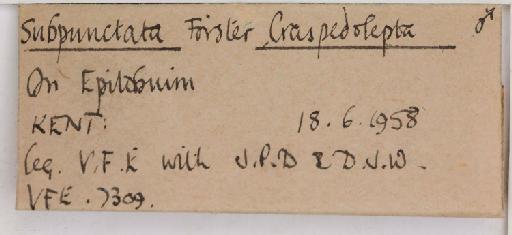 Subpunctata Förster Craspedolepta ♂
On Epilobuim
KENT: 18.6.1958
leg. V.F.E with J.P.D & D.J.W.
VFE. 7309.